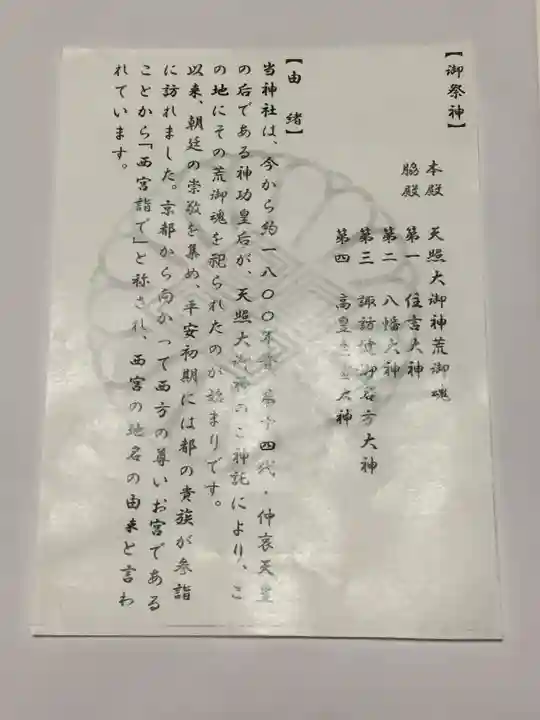 【御祭神】
本殿 天照大御神荒御魂
脇殿 第一 住吉大神
第二 八幡大神
第三 諏訪健御名方大神
第四 高皇 大神
【由緒】
当神社は、今から約一八〇〇年 第十四代・仲哀天皇
の后である神功皇后が、天照大御神のご神託により、こ
の地にその荒御魂を祀られたのが始まりです。
以来、朝廷の崇敬を集め、平安初期には都の貴族が参詣
に訪れました。京都から向かって西方の尊いお宮である
ことから「西宮詣で」と称され、西宮の地名の由来と言わ
れています。